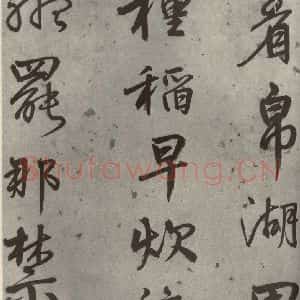 看帛湖
種稻早炊
罷那禁
Shufawang.CN